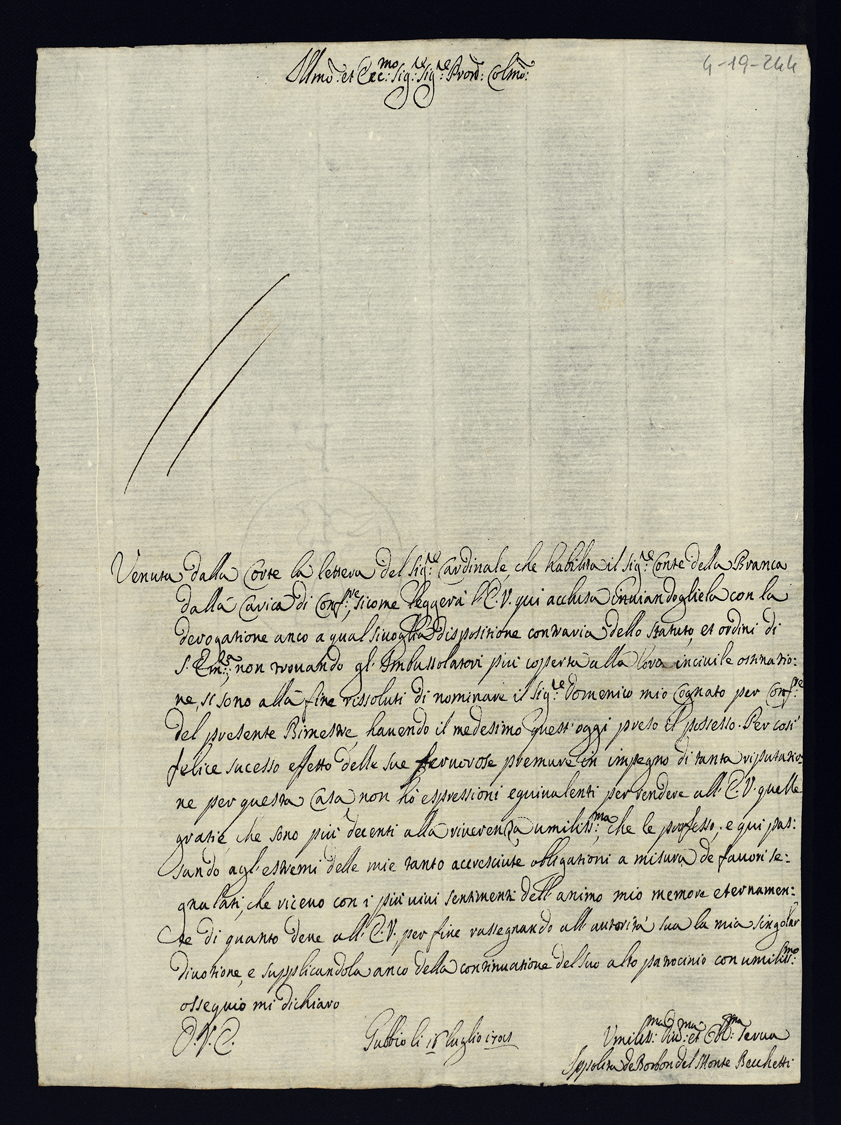 4-19-244
Illmo: et Ecc:mo Sig:re Sig:re Pron: Colmo:
Venuta dalla Corte la lettera del Sig:re Cardinale, che habilita il Sig:re Conte della Branca
dalla Carica di Conf:re, sicome leggerà l'E.V. qui acclusa inviandogliela con la
derogatione anco a qual sivoglia dispositione contraria dello statuto, et ordini di
S. Em:za non trovando gl'Imbussolatori più coperta alla loro incivile ostinatio:
ne, si sono alla fine rissoluti di nominare il Sig:re Domenico mio Cognato per Conf:re
del presente Bimestre, havendo il medesimo quest'oggi preso il possesso. Per così
felice sucesso effetto delle sue premure in impegno di tanta riputatio:
ne per questa Casa non hò espressioni equivalenti per rendere all'E.V. quelle
gratie, che sono più decenti alla riverenza umiliss:ma, che le professo, e qui pas:
sando agl'estremi delle mie tanto accresciute obligationi a misura de favori se:
gnalati, che ricevo con i più vivi sentimenti dell'animo mio memore eternamen:
te di quanto deve all'E.V. per fine rassegnando all'autorità sua la mia singolar
divotione, e supplicandola anco della continuatione del suo alto patrocinio con umiliss:mo
ossequio mi dichiaro
D.V.E.
Gubbio li 18 luglio
Umiliss:ma Div:ma et Obl:ma Serva
Ippolita de Borbon del Monte Becchetti